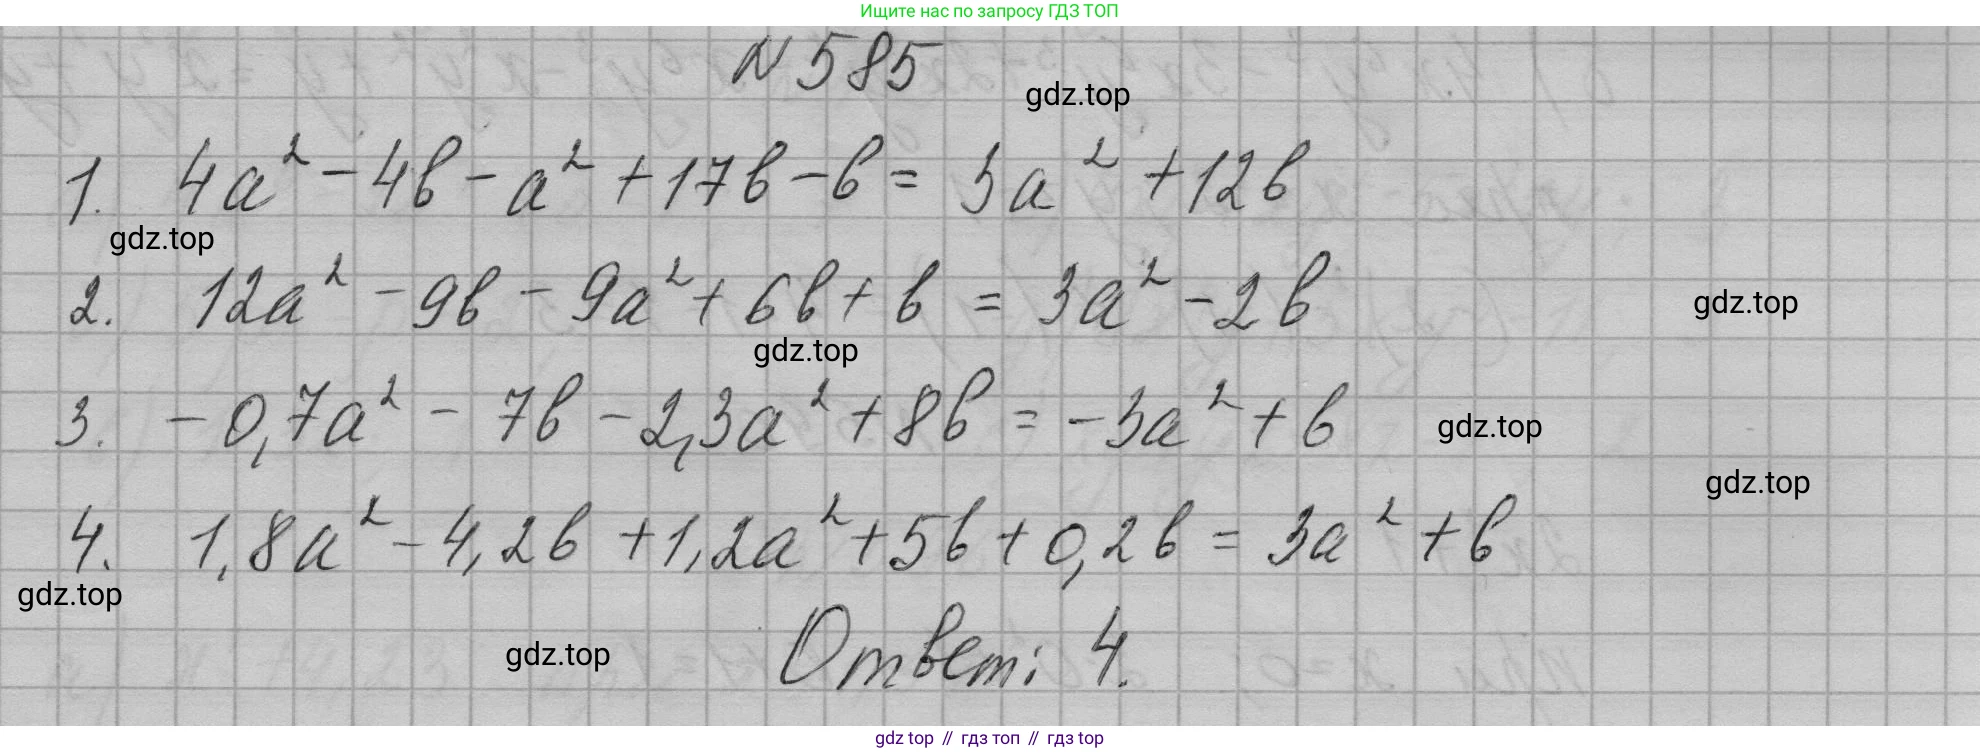 Ищите нас по запросу ГДЗ ТОП
N 585
gdz.top
1. 4a² - 4b - a² + 17b - b = 3a² + 12b
gdz.top
2. 12a² - 9b - 9a² + 6b + b = 3a² - 2b
gdz.top
gdz.top
3. - 0,7a² - 7b - 2,3a² + 8b = -3a² + b
gdz.top
gdz.top
4. 1,8a² - 4,2b + 1,2a² + 5b + 0,2b = 3a² + b
gdz.top
gdz.top
Ответ: 4.
gdz top // гдз топ // гдз top